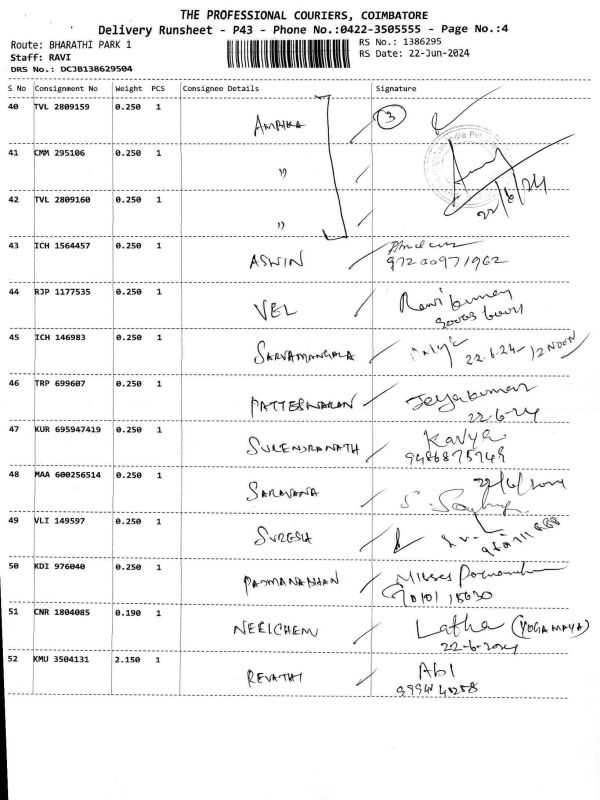 THE PROFESSIONAL COURIERS, COIMBATORE
Delivery Runsheet - P43 - Phone No.:0422-3505555 - Page No.:4
Route: BHARATHI PARK 1 RS No.: 1386295
Staff: RAVI RS Date: 22-Jun-2024
DRS No.: DCJB138629504
S No Consignment No Weight PCS Consignee Details Signature
40 TVL 2809159 0.250 1 AMBIKA 3
41 CMM 295106 0.250 1 "
42 TVL 2809160 0.250 1 " 22/6/24
43 ICH 1564457 0.250 1 ASWIN
44 RJP 1177535 0.250 1 VEL
45 ICH 146983 0.250 1 SARVAMANGALA 22-6-24-12 NOON
46 TRP 699607 0.250 1 Jeyakumar
22-6-24
47 KUR 695947419 0.250 1 SURENDRANATH Kavya
48 MAA 600256514 0.250 1 SARAVANA
49 VLI 149597 0.250 1 SURESH
50 KDI 976040 0.250 1 PADMANABHAN
51 CNR 1804085 0.190 1 NEELCHEM Latha (YOGA MAYA)
22-6-2024
52 KMU 3504131 2.150 1 REVATHI Abl